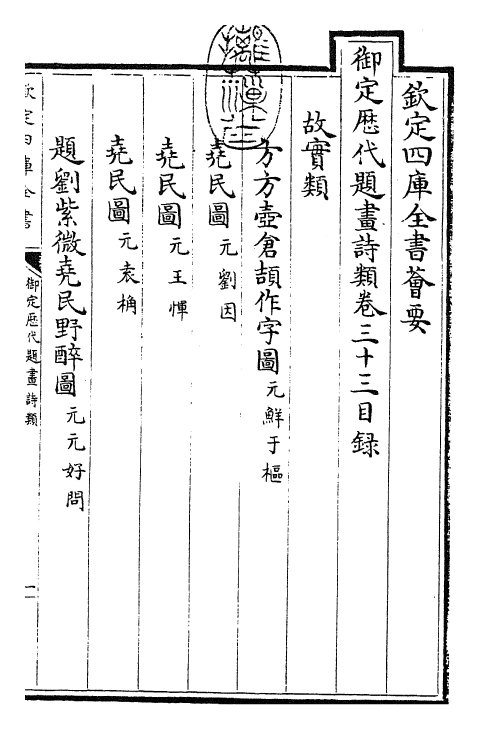 欽定四庫全書薈要
御定歴代題畫詩類卷三十三目録
故實類
方方壺倉頡作字圖 元鮮于樞
堯民圖 元劉因
堯民圖 元王惲
堯民圖 元袁桷
題劉紫微堯民野醉圖 元元好問
欽定四庫全書
御定歴代題畫詩類
一